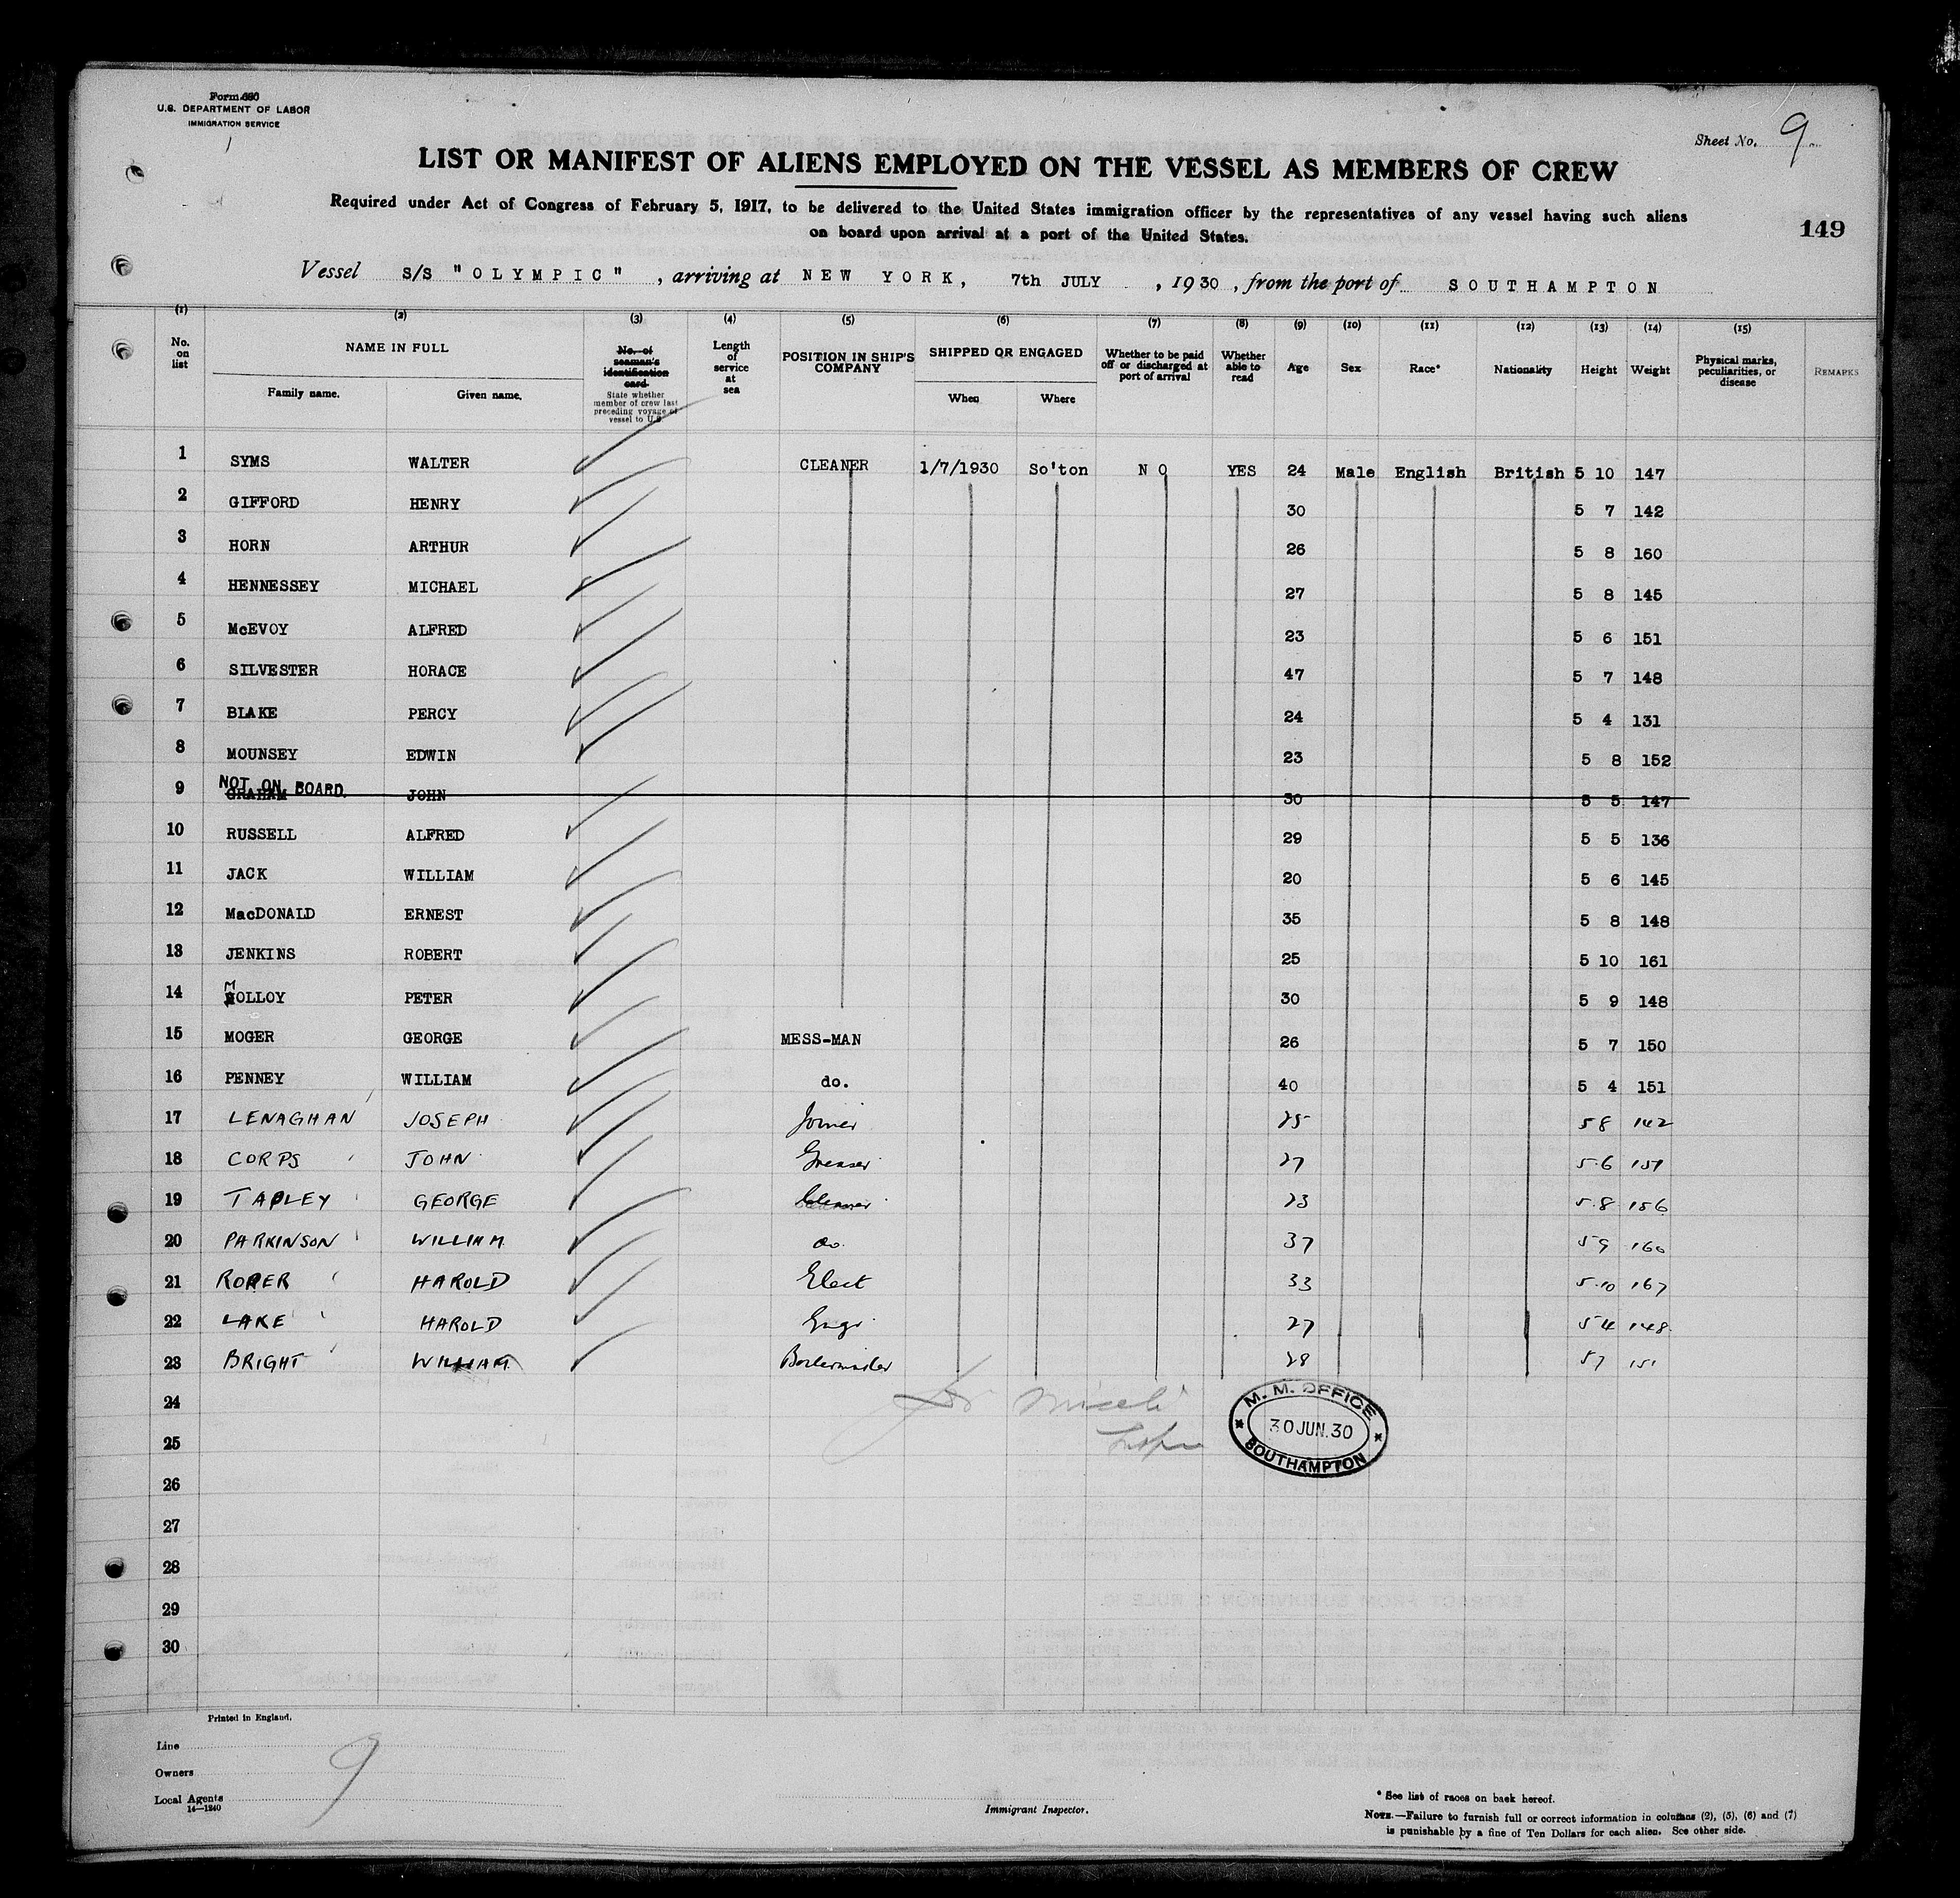 Form 680
U.S. DEPARTMENT OF LABOR
IMMIGRATION SERVICE
Sheet No. 9
LIST OR MANIFEST OF ALIENS EMPLOYED ON THE VESSEL AS MEMBERS OF CREW
Required under Act of Congress of February 5, 1917, to be delivered to the United States immigration officer by the representatives of any vessel having such aliens
on board upon arrival at a port of the United States.
149
Vessel S/S "OLYMPIC", arriving at NEW YORK, 7th JULY, 1930, from the port of SOUTHAMPTON
(1) (2) (3) (4) (5) (6) (7) (8) (9) (10) (11) (12) (13) (14) (15)
No. on list
NAME IN FULL
Family name. Given name.
No. of seaman's identification card
State whether member of crew last preceding voyage of vessel to U.S.
Length of service at sea
POSITION IN SHIP'S COMPANY
SHIPPED OR ENGAGED
When Where
Whether to be paid off or discharged at port of arrival
Whether able to read
Age
Sex
Race*
Nationality
Height
Weight
Physical marks, peculiarities, or disease
REMARKS
1 SYMS WALTER CLEANER 1/7/1930 So'ton NO YES 24 Male English British 5 10 147
2 GIFFORD HENRY 30 5 7 142
3 HORN ARTHUR 26 5 8 160
4 HENNESSEY MICHAEL 27 5 8 145
5 McEVOY ALFRED 23 5 6 151
6 SILVESTER HORACE 47 5 7 148
7 BLAKE PERCY 24 5 4 131
8 MOUNSEY EDWIN 23 5 8 152
NOT ON BOARD.
9 GRAHAM JOHN 30 5 5 147
10 RUSSELL ALFRED 29 5 5 136
11 JACK WILLIAM 20 5 6 145
12 MacDONALD ERNEST 35 5 8 148
13 JENKINS ROBERT 25 5 10 161
14 MOLLOY PETER 30 5 9 148
15 MOGER GEORGE MESS-MAN 26 5 7 150
16 PENNEY WILLIAM do. 40 5 4 151
17 LENAGHAN JOSEPH Joiner 25 5 8 142
18 CORPS JOHN Greaser 27 5.6 151
19 TAPLEY GEORGE Cleaner 23 5.8 156
20 PARKINSON WILLIAM do. 37 5 9 160
21 ROPER HAROLD Elect 33 5.10 167
22 LAKE HAROLD Engr 27 5 4 148
23 BRIGHT WILLIAM Boilermaker 28 5 7 151
24
M. M. OFFICE
30 JUN. 30
SOUTHAMPTON
25
26
27
28
29
30
Printed in England.
Line
Owners
Local Agents
14—1240
9
Immigrant Inspector.
* See list of races on back hereof.
NOTE.—Failure to furnish full or correct information in columns (2), (5), (6) and (7)
is punishable by a fine of Ten Dollars for each alien. See other side.